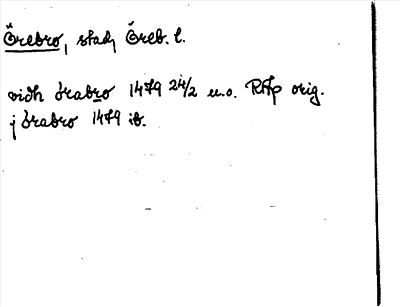 Örebro, stad, Öreb. l.
vidh örabro 1479 24/2 u.o. RAp orig.
j örabro 1479 ib.